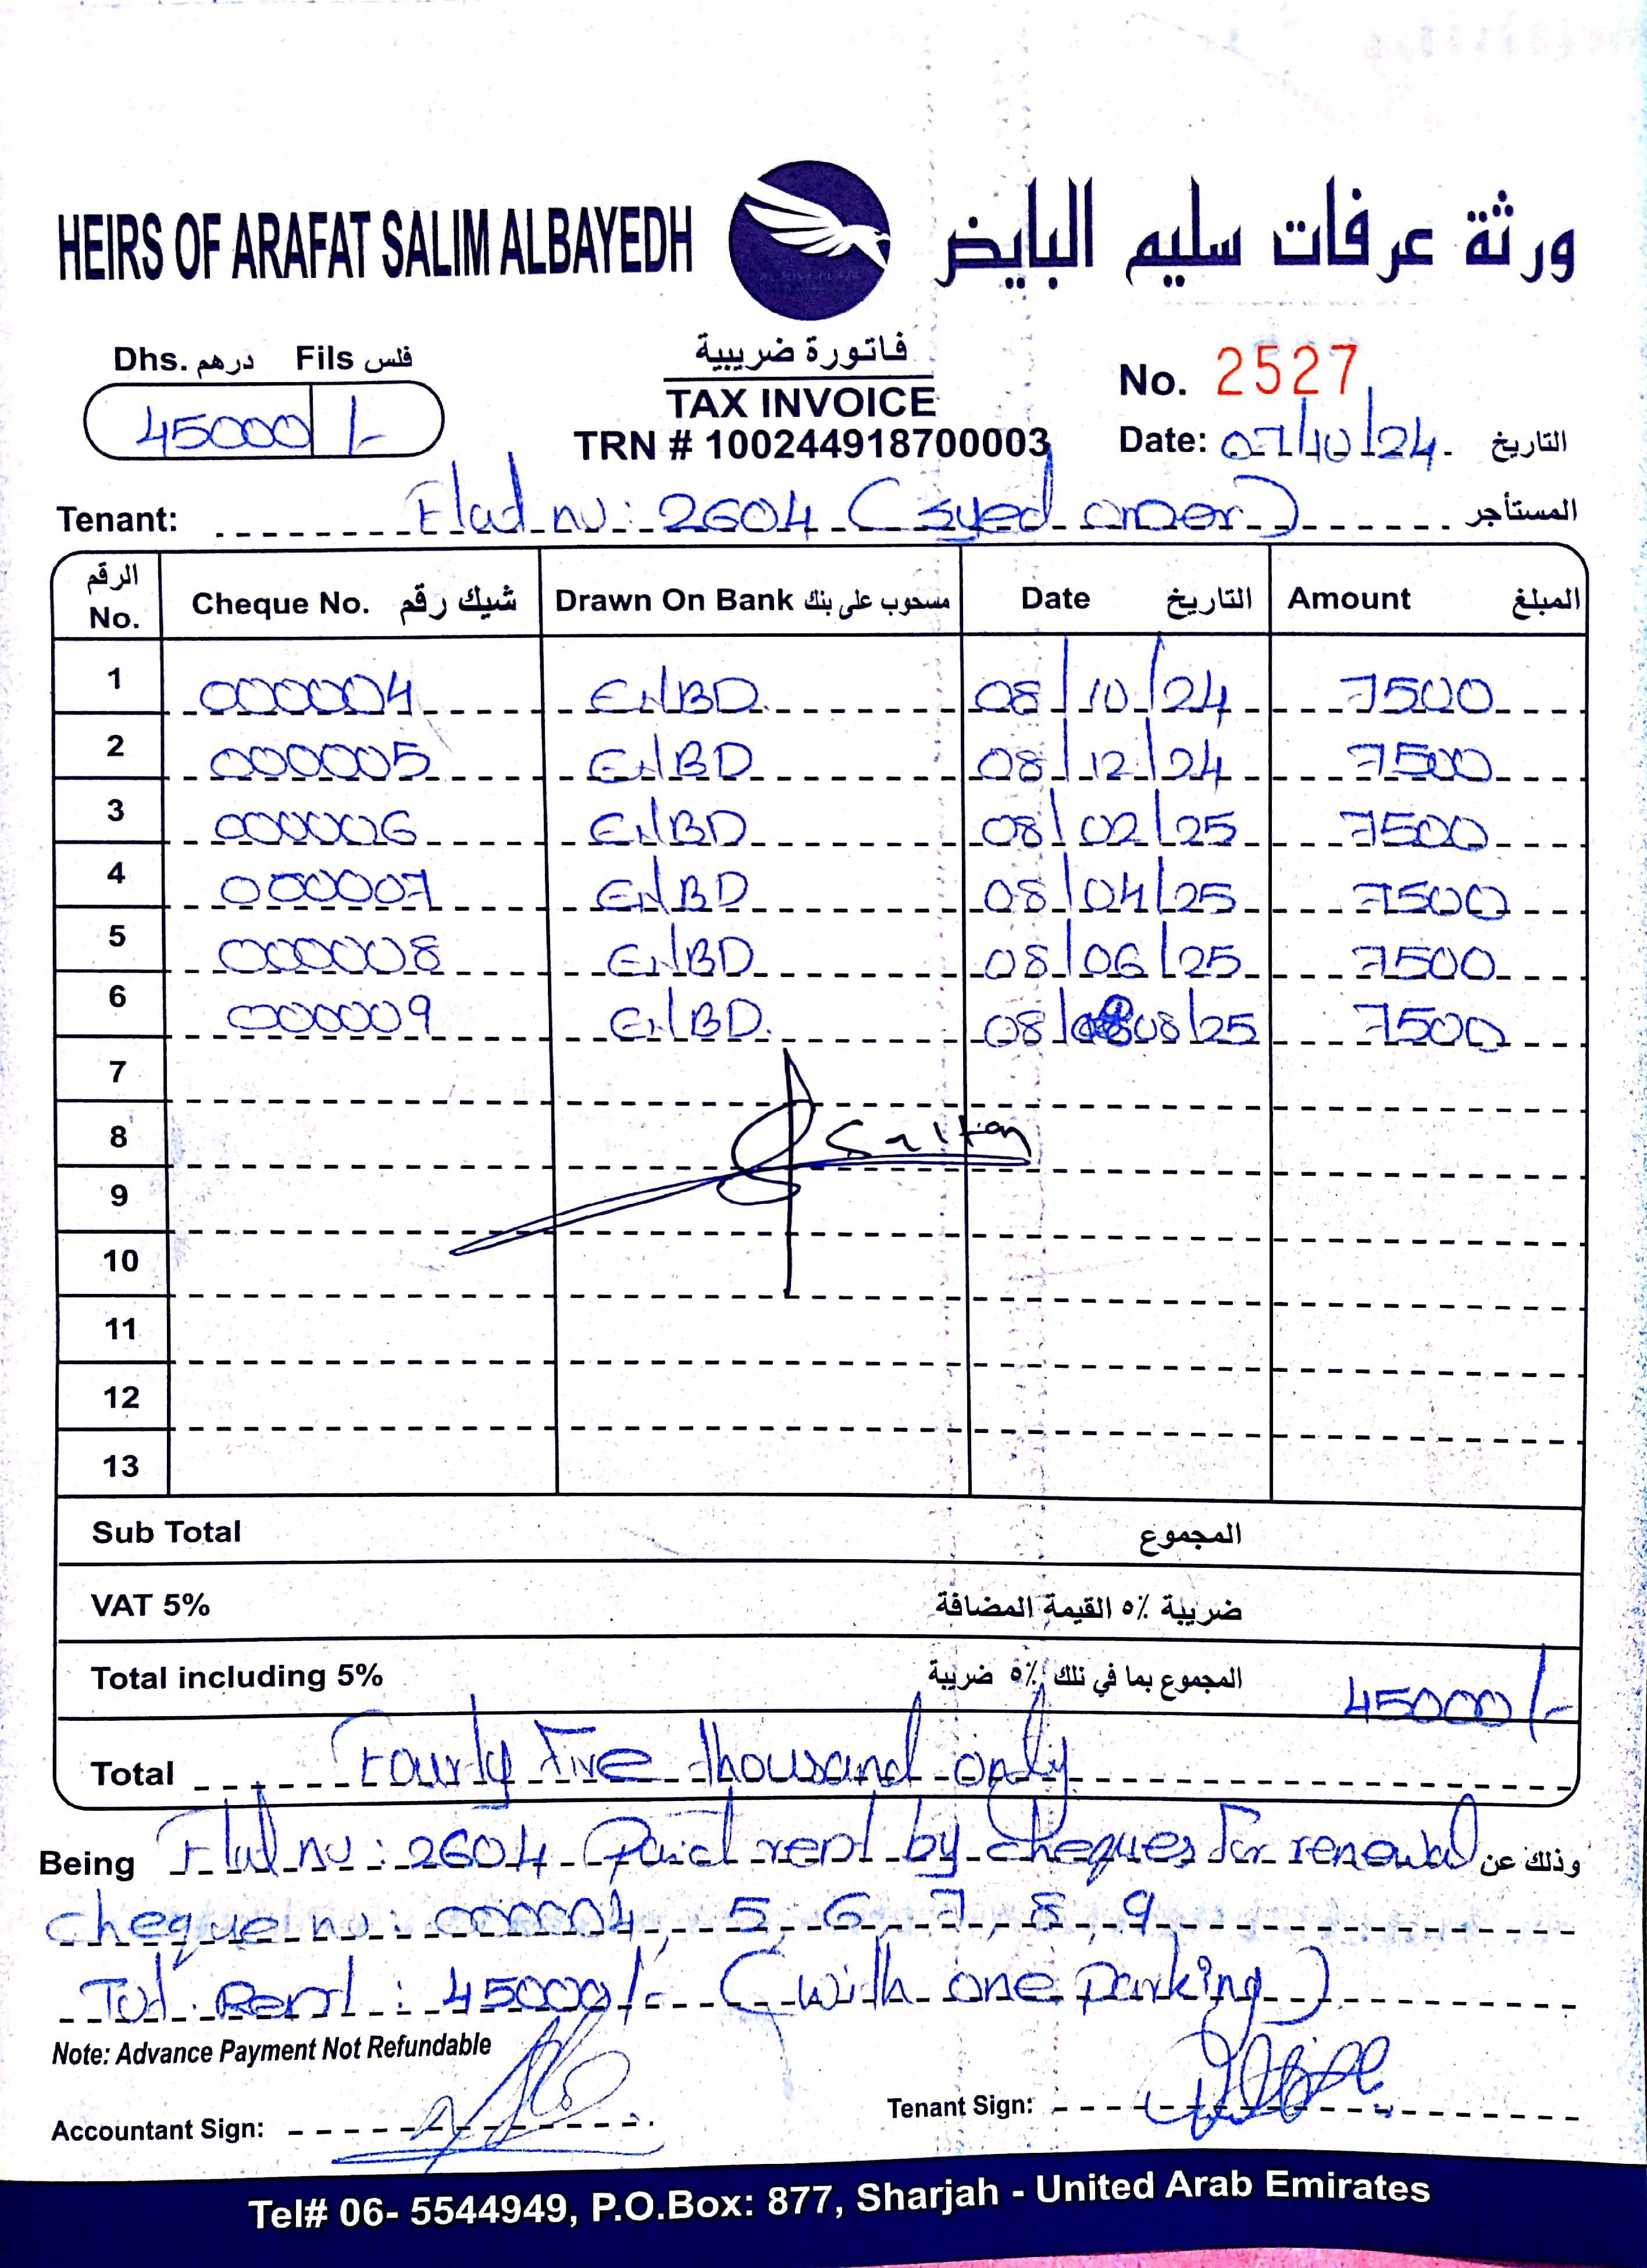 HEIRS OF ARAFAT SALIM ALBAYEDH ورثة عرفات سليم البايض
Dhs. درهم Fils فلس
45000 /-
فاتورة ضريبية
TAX INVOICE
TRN # 100244918700003
No. 2527
Date: 07/10/24. التاريخ
Tenant: Flad no: 2604 (syed omer) المستأجر
الرقم No. Cheque No. شيك رقم Drawn On Bank مسحوب على بنك Date التاريخ Amount المبلغ
1 000004 ENBD 08/10/24 7500
2 000005 ENBD 08/12/24 7500
3 000006 ENBD 08/02/25 7500
4 000007 ENBD 08/04/25 7500
5 000008 ENBD 08/06/25 7500
6 000009 ENBD 08/08/25 7500
7
8 Saltan
9
10
11
12
13
Sub Total المجموع
VAT 5% ضريبة ٥٪ القيمة المضافة
Total including 5% المجموع بما في ذلك ٥٪ ضريبة 45000/-
Total Fourty Five thousand only
Being Flat no: 2604 Paid rent by cheques for renewal وذلك عن
cheque no: 000004, 5, 6, 7, 8, 9
Tot. Rent: 45000/- (with one parking)
Note: Advance Payment Not Refundable
Accountant Sign:
Tenant Sign:
Tel# 06- 5544949, P.O.Box: 877, Sharjah - United Arab Emirates